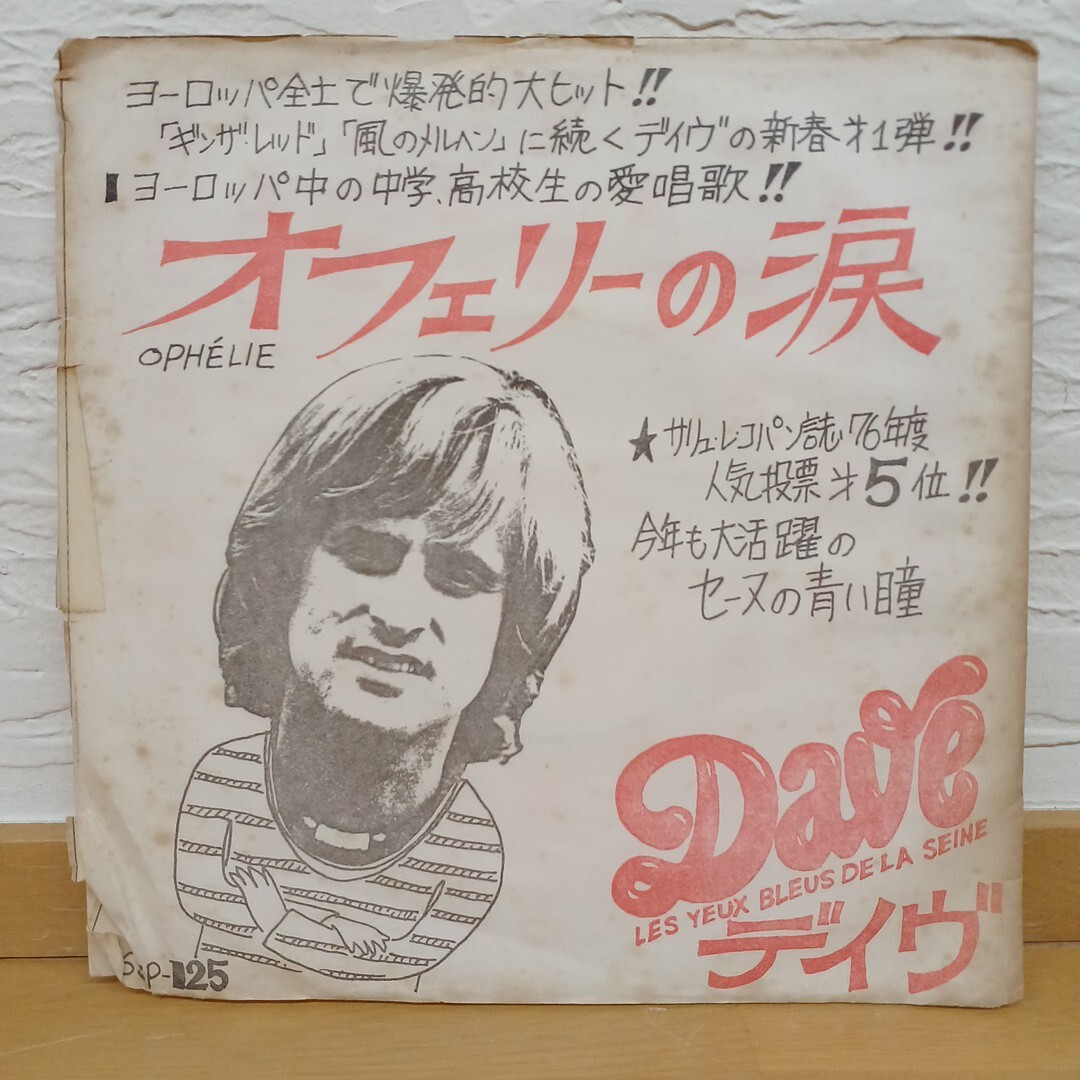 ヨーロッパ全土で爆発的大ヒット!!
「ギンザ・レッド」「風のメルヘン」に続くデイヴの新春才1弾!!
ヨーロッパ中の中学、高校生の愛唱歌!!
オフェリーの涙
OPHÉLIE
★サリュ・レ・コパン誌'76年度
人気投票才5位!!
今年も大活躍の
セーヌの青い瞳
Dave
LES YEUX BLEUS DE LA SEINE
デイヴ
-125